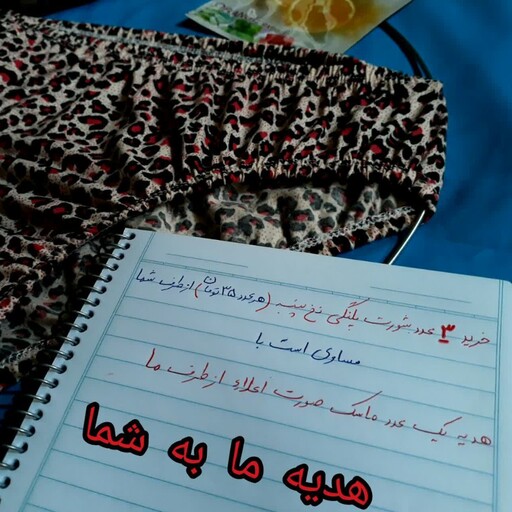 خرید ۳ عدد شورت پلنگی نخ پنبه (هر عدد ۳۵ تومان) از طرف شما
مساوی است با
هدیه یک عدد ماسک صورت اعلاء از طرف ما
هدیه ما به شما